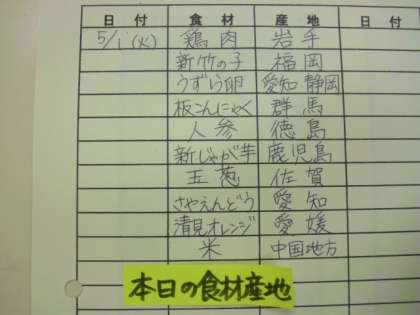 日付 食材 産地 日付
5/1(火) 鶏肉 岩手
新竹の子 福岡
うずら卵 愛知・静岡
板こんにゃく 群馬
人参 徳島
新じゃが芋 鹿児島
玉葱 佐賀
さやえんどう 愛知
清見オレンジ 愛媛
米 中国地方
本日の食材産地